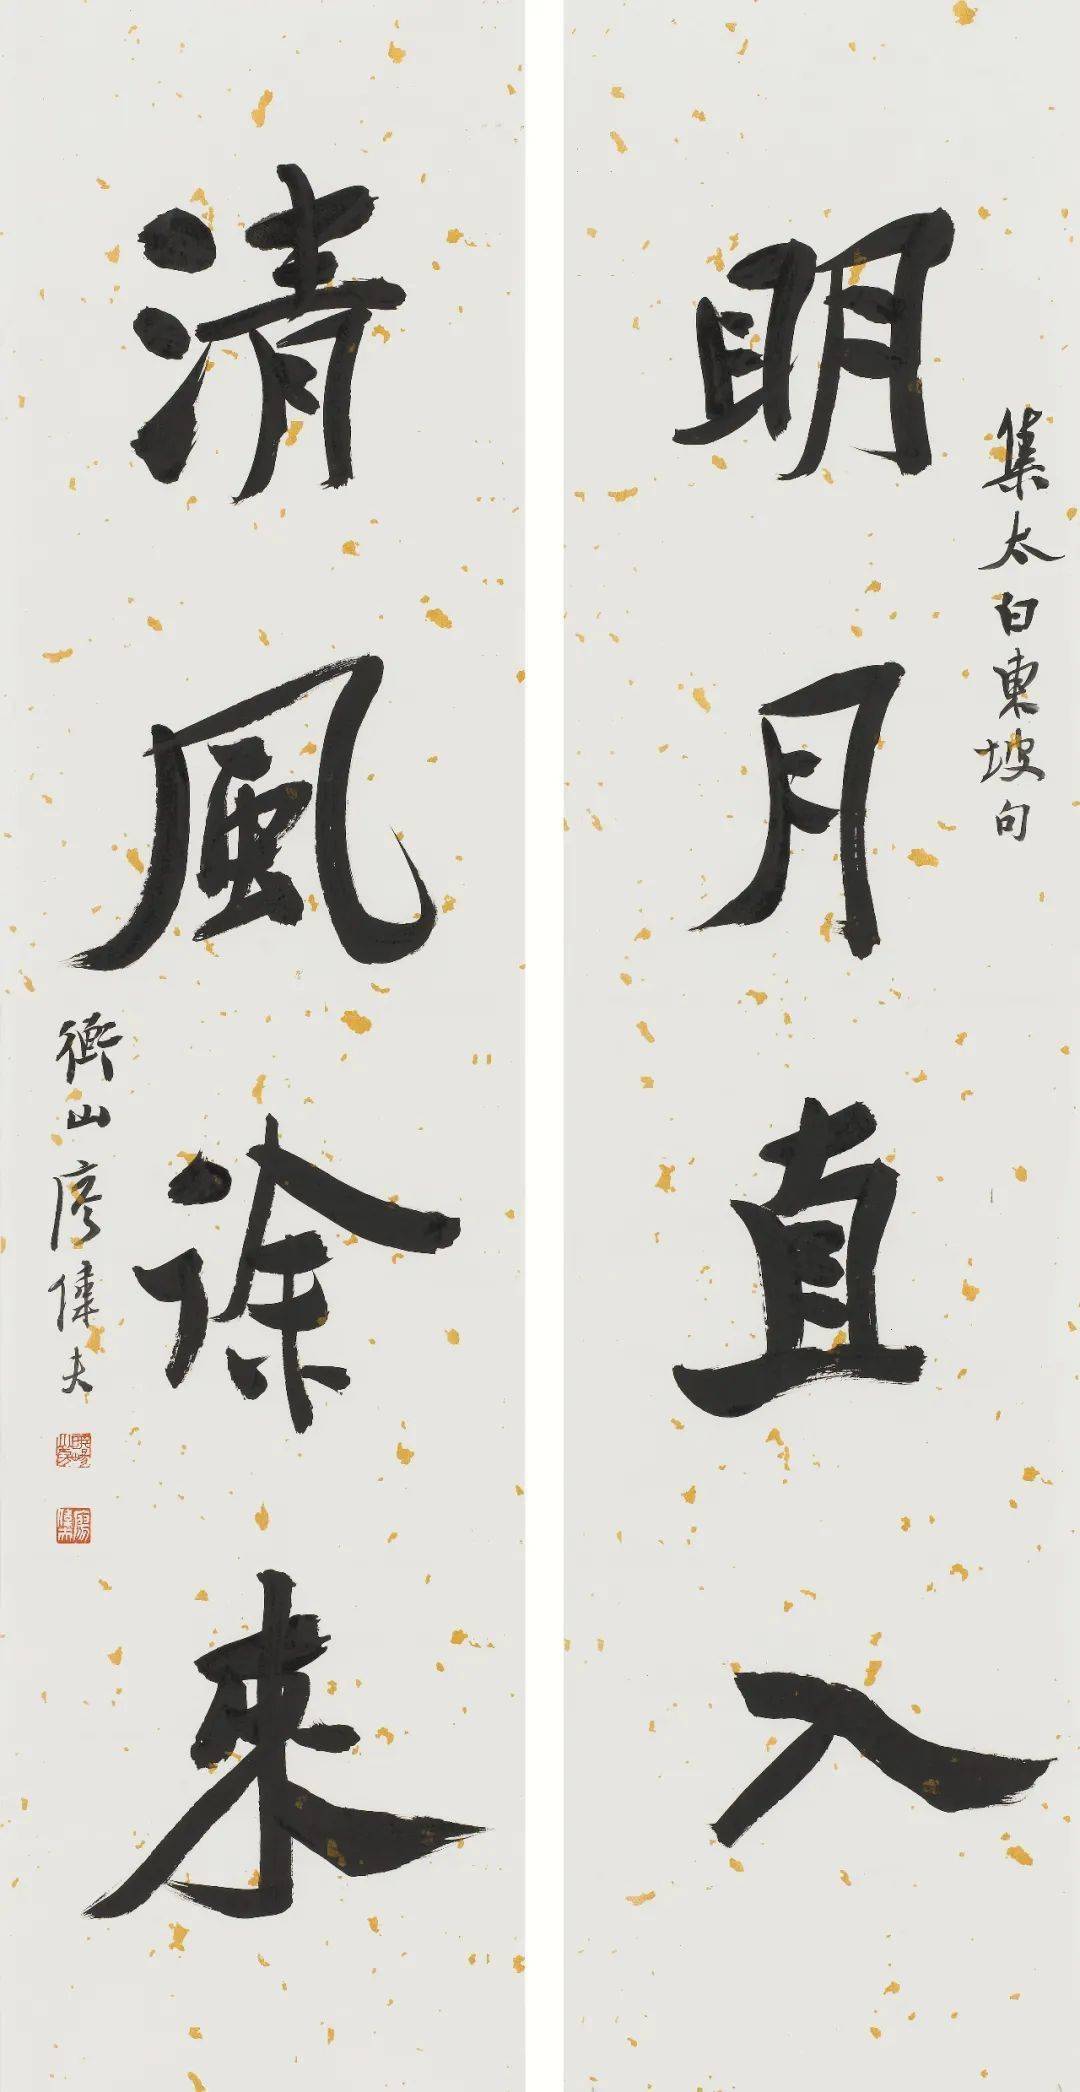 集太白東坡句
明月直入
清風徐來
衡山廖偉夫